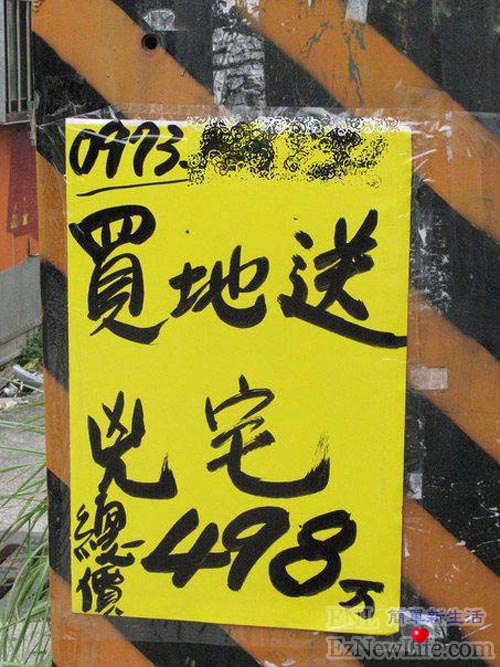 0973-
買地送
兇宅
總價498万
ENL 簡單新生活
EzNewLife.com